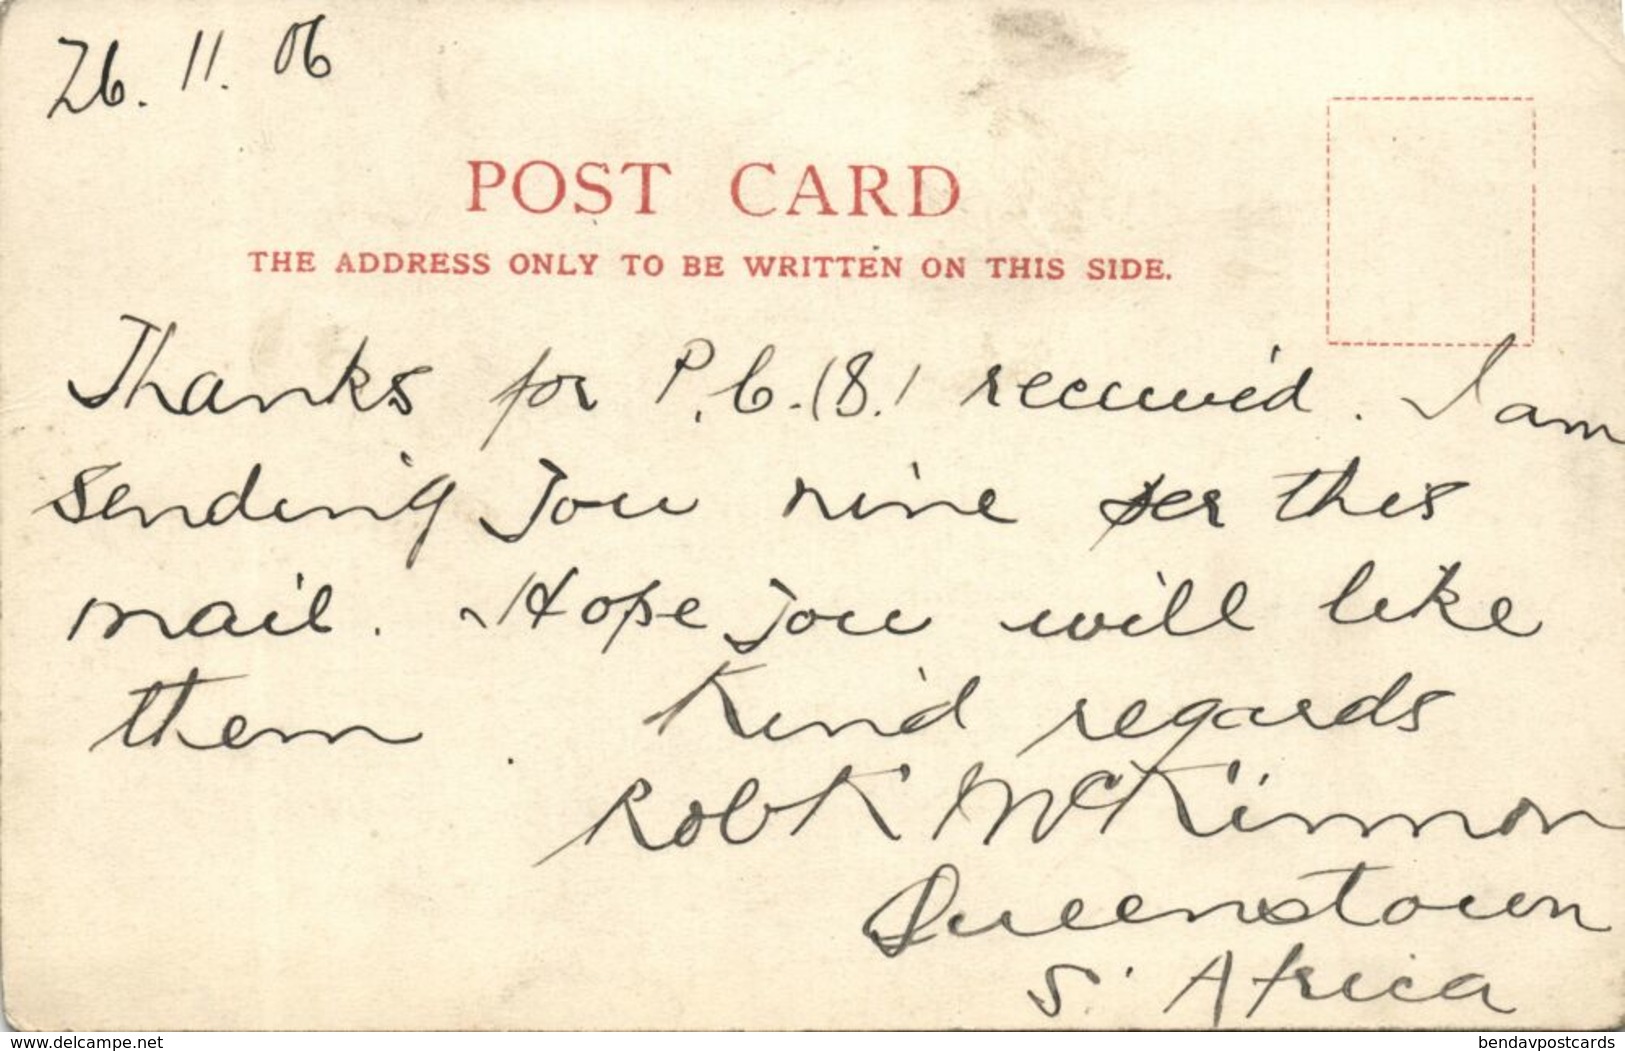 26. 11. 06
POST CARD
THE ADDRESS ONLY TO BE WRITTEN ON THIS SIDE.
Thanks for P.C. (8.) received. I am
sending you nine per this
mail. Hope you will like
them. Kind regards
Robt McKinnon
Queenstown
S. Africa
www.delcampe.net
bendavpostcards